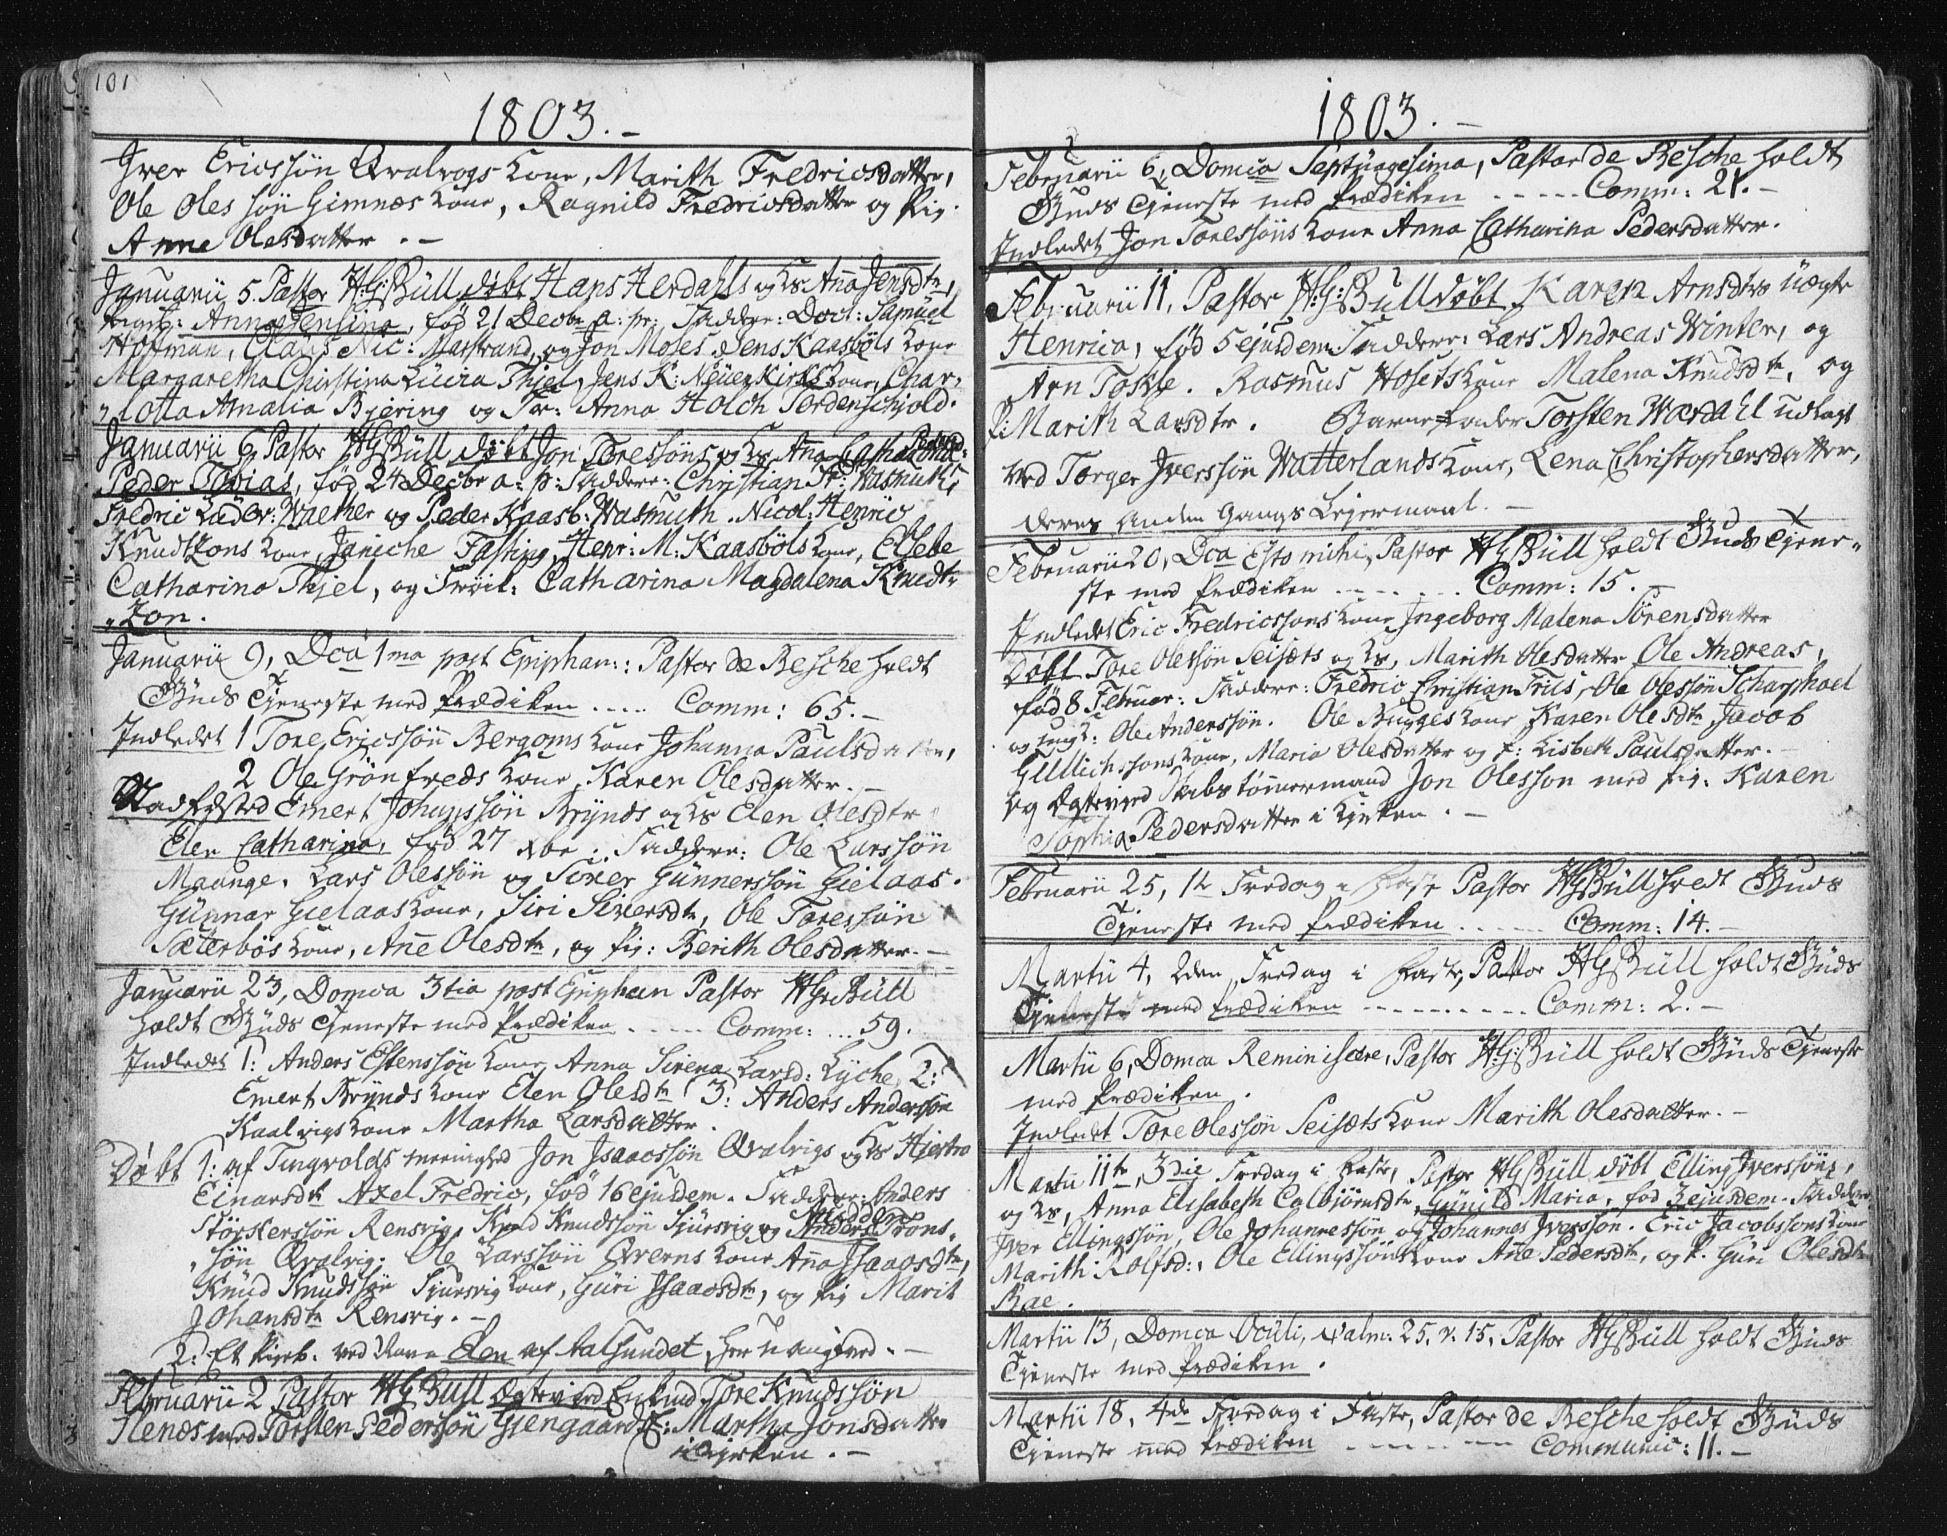 101
1803.-
Iver Ericssøn Qvalvogs Kone, Marith Fredricsdatter,
Ole Oles søn Gimnæs Kone, Ragnild Fredricsdatter og Pig.
Anne Olesdatter.-
Januarii 5. Pastor H:G:Büll døbt Hans Herdahls og Hs Anna Jensdtr,
Anna Jensina, fød 21 Decbr a: pr: Faddere: Doct: Samuel
Hoffman, Claus Nic: Mastrand, og Jon Moses. Jens Kaasbøls Kone
Margaretha Christina Lucia Thiel, Jens K: Neüer Kirks Kone, Char„
„lotta Amalia Bjering og Fr: Anna Holch Tordenschjold.
Januarii 6, Pastor HGBüll døbt Jon Toressøns og Hs Anna Cathar: Pedersd:
Peder Tobias, fød 24 Decbr a: p: Faddere: Christian Fr: Wasmuth,
Fredric Lüder: Walther og Peder Kaasb: Wasmuth. Nicol: Henric
Knudtzons Kone, Janiche Fasting, Henr: M: Kaasbøls Kone, Elsebe
Catharina Thiel, og Frøil: Catharina Magdalena Knudt„
„zon.
Januarii 9, Dca 1ma post Epiphan:: Pastor de Besche holdt
Guds Tjeneste med Prædiken .... Comm: 65.-
Indledet 1 Tore Ericssøn Bergoms Kone Johanna Paulsdatter,
2 Ole Grönfreds Kone Karen Olesdatter.-
Stadfæsted Emert Johanssøn Brynds og Hs Elen Olesdtr
Elen Catharina, fød 27 xbr. Faddere: Ole Larssøn
Maange. Lars Olessøn og Siver Günnerssøn Gielaas.
Günnar Gielaas Kone, Siri Siversdtr, Ole Toressøn
Sæterbøs Kone, Ane Olesdtr, og Pig: Berith Olesdatter.-
Januarii 23, Domca 3tia post Epiphan Pastor HGBüll
holdt Guds Tjeneste med Prædiken ..... Comm: ... 59.
Indledet 1: Anders Estenssøn Kone Anna Sirena Larsd: Lyche, 2:
Emert Brynds Kone Elen Olesdtr 3: Anders Anderssøn
Kaalvigs Kone Martha Larsdatter.
Døbt 1: af Tingvolds menighed Jon Isaacssøn Qvalvigs og Hs Hjertro
Einarsdtr Axel Fredric, fød 16 ejusdem. Faddere: Anders
Størkerssøn Rensvig, Knud Knudssøn Sjursvig og Anders Tøns„
„søn Qvalvig. Ole Larssøn Qverns Kone Anna Isaacsdtr,
Knud Knudssøn Sjursvig Kone, Guri Isaacsdtr, og Pig Marit
Johansdtr Rensvig.-
2: Et Pigeb. ved Navn Elen af Aalsundet,
Februarii 2 Pastor HGBüll Ægtevied Enkmd Tore Knudssøn
Henes med Torsten Pederssøn Gjengaard E: Martha Jonsdatter
i Kirken.-
1803.-
Februarii 6, Domca Septuagesima, Pastor de Besche holdt
Guds Tjeneste med Prædiken ..... Comm: 21.-
Indledet Jon Toressøns Kone Anna Catharina Pedersdatter.
Februarii 11, Pastor H:G:Büll døbt Karen Arnsdtrs uægte
Henrica, fød 5 ejusdem Faddere: Lars Andreas Winter, og
Arn Tokle. Rasmus Hosets Kone Malena Knudsdtr, og
P: Marith Larsdtr. Barnefader Torsten Wardahl udlagt
ved Torger Iverssøn Watterlands Kone, Lena Christophersdatter,
deres Anden Gangs Lejermaal.-
Februarii 20, Dca Esto mihi, Pastor HGBüll holdt Guds Tjene„
ste med Prædiken ....... Comm: 15.-
Indledet Eric Fredricssøns Kone Ingeborg Malena Sørensdatter
Døbt Tore Olessøn Seisæts og Hs, Marith Olesdatter Ole Andreas,
fød 8 Februar: Faddere: Fredric Christian Friis, Ole Olessøn Scharphoel
og ungk: Ole Anderssøn. Ole Brygges Kone Karen Olesdtr, Jacob
Gullichssons Kone, Maria Olesdatter og P: Lisbeth Paulsdatter.-
og Ægteviet Skibstømmermand Jon Olesson med Pig: Karen
Sophia Pedersdatter i Kirken.-
Februarii 25, 1te Fredag i Faste Pastor HGBüll holdt Guds
Tjeneste med Prædiken ..... Comm: 14.-
Martii 4, 2den Fredag i Faste, Pastor HGBüll holdt Guds
Tjeneste med Prædiken .......... Comm: 2.-
Martii 6, Domca Reminiscere, Pastor H:G:Büll holdt Guds Tjeneste
med Prædiken.
Indledet Tore Olessøn Seisæts Kone Marith Olesdatter.-
Martii 11te, 3die Fredag i Faste, Pastor HGBüll døbt Elling Iverssøns,
og Hs, Anna Elisabeth Colbjørnsdtr, Gunild Maria, fød 3 ejusdem. Faddere
Iver Ellingssøn, Ole Johannessøn og Johannes Iverssøn. Eric Jacobssøns Kone
Marith Rolfsd:, Ole Ellingssøns Kone Ane Pedersdtr, og P. Guri Olesdtr
Bae.
Martii 13, Domca Oculi, Psalm: 25. v. 15, Pastor HGBüll holdt Guds
Tjeneste med Prædiken.
Martii 18, 4de Fredag i Faste, Pastor de Besche holdt Guds
Tjeneste med Prædiken ------- Communic: 11.-